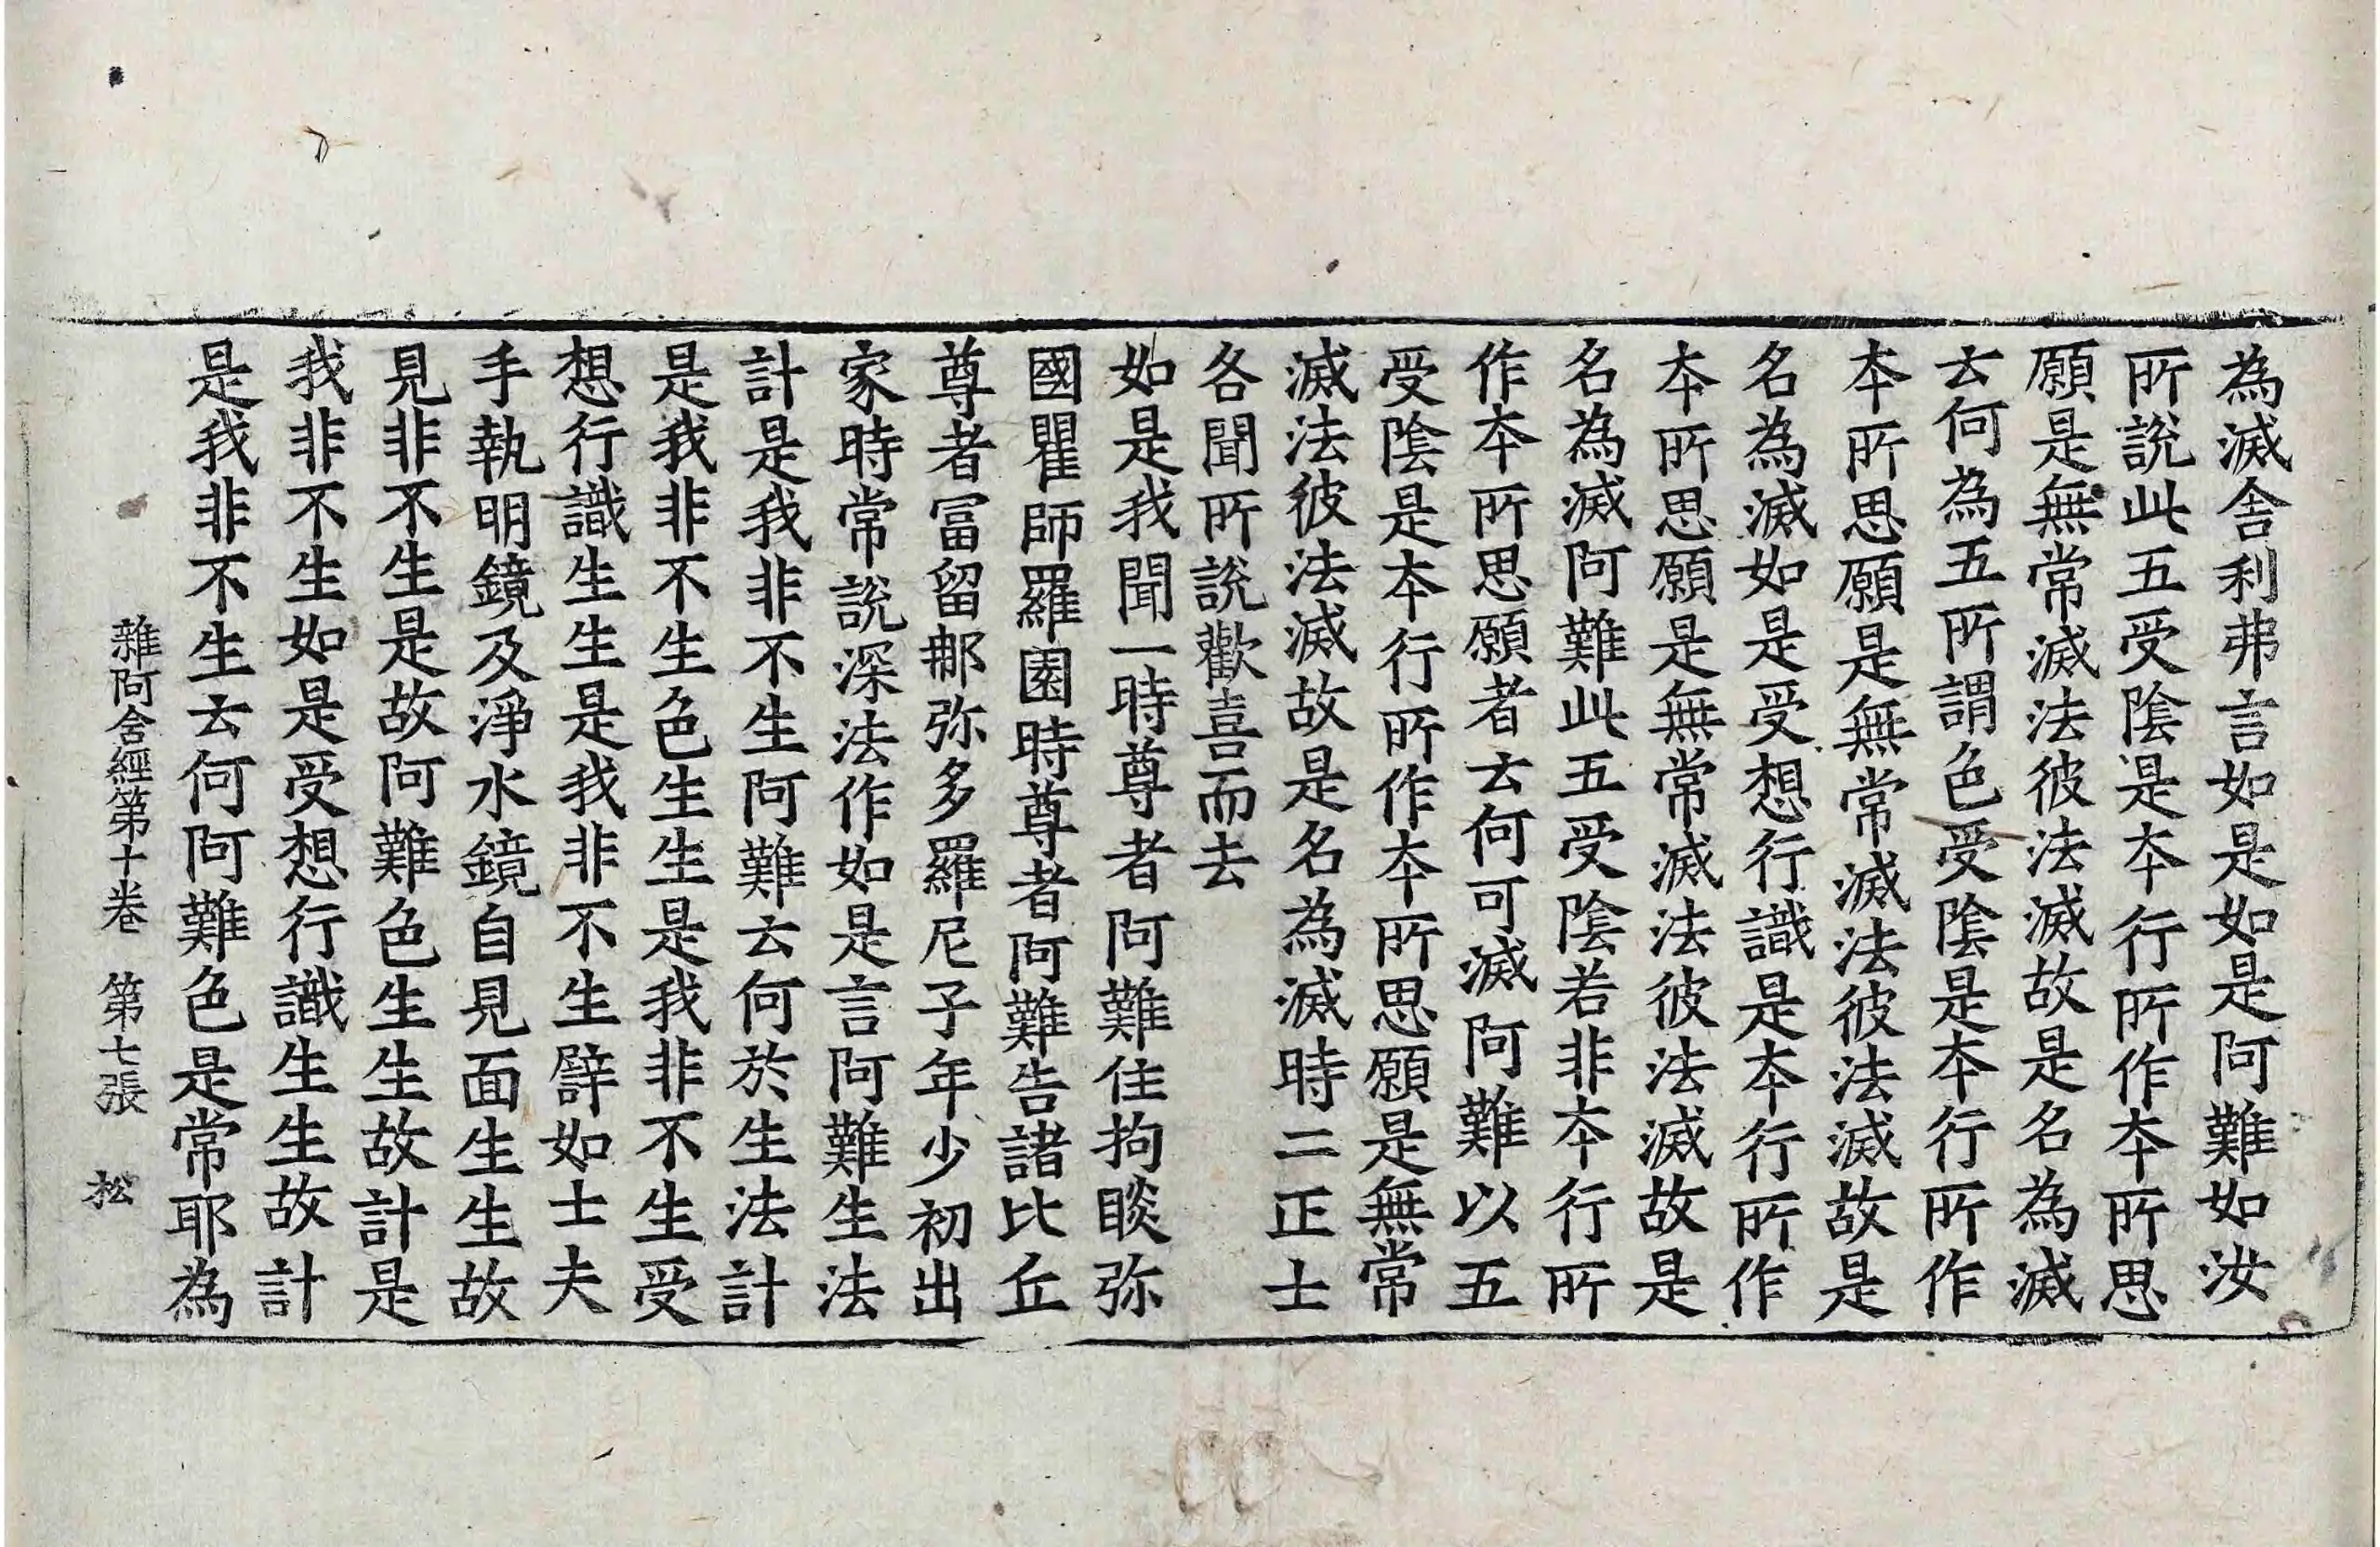 為滅舍利弗言如是如是阿難如汝
所說此五受陰是本行所作本所思
願是無常滅法彼法滅故是名為滅
云何為五所謂色受陰是本行所作
本所思願是無常滅法彼法滅故是
名為滅如是受想行識是本行所作
本所思願是無常滅法彼法滅故是
名為滅阿難此五受陰若非本行所
作本所思願者云何可滅阿難以五
受陰是本行所作本所思願是無常
滅法彼法滅故是名為滅時二正士
各聞所說歡喜而去
如是我聞一時尊者阿難住拘睒弥
國瞿師羅園時尊者阿難告諸比丘
尊者冨留那弥多羅尼子年少初出
家時常說深法作如是言阿難生法
計是我非不生阿難云何於生法計
是我非不生色生生是我非不生受
想行識生生是我非不生譬如士夫
手執明鏡及淨水鏡自見面生生故
見非不生是故阿難色生生故計是
我非不生如是受想行識生生故計
是我非不生云何阿難色是常耶為
雜阿含經第十卷　第七張　松